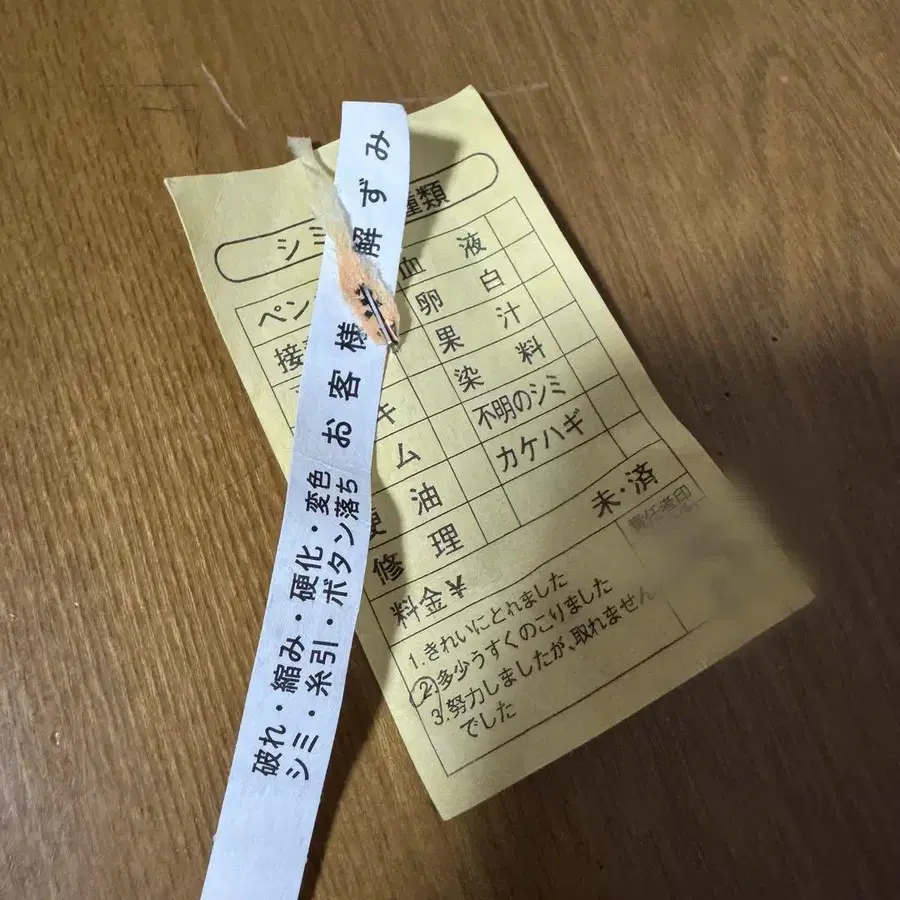 お客様 解ずみ
破れ・縮み・硬化・変色
シミ・糸引・ボタン落ち
シミ 種類
ペン 血液
接 卵白
果汁
キ 染料
ム 不明のシミ
油 カケハギ
修理 未・済
料金¥ 責任者印
1.きれいにとれました
2.多少うすくのこりました
3.努力しましたが、取れません
でした